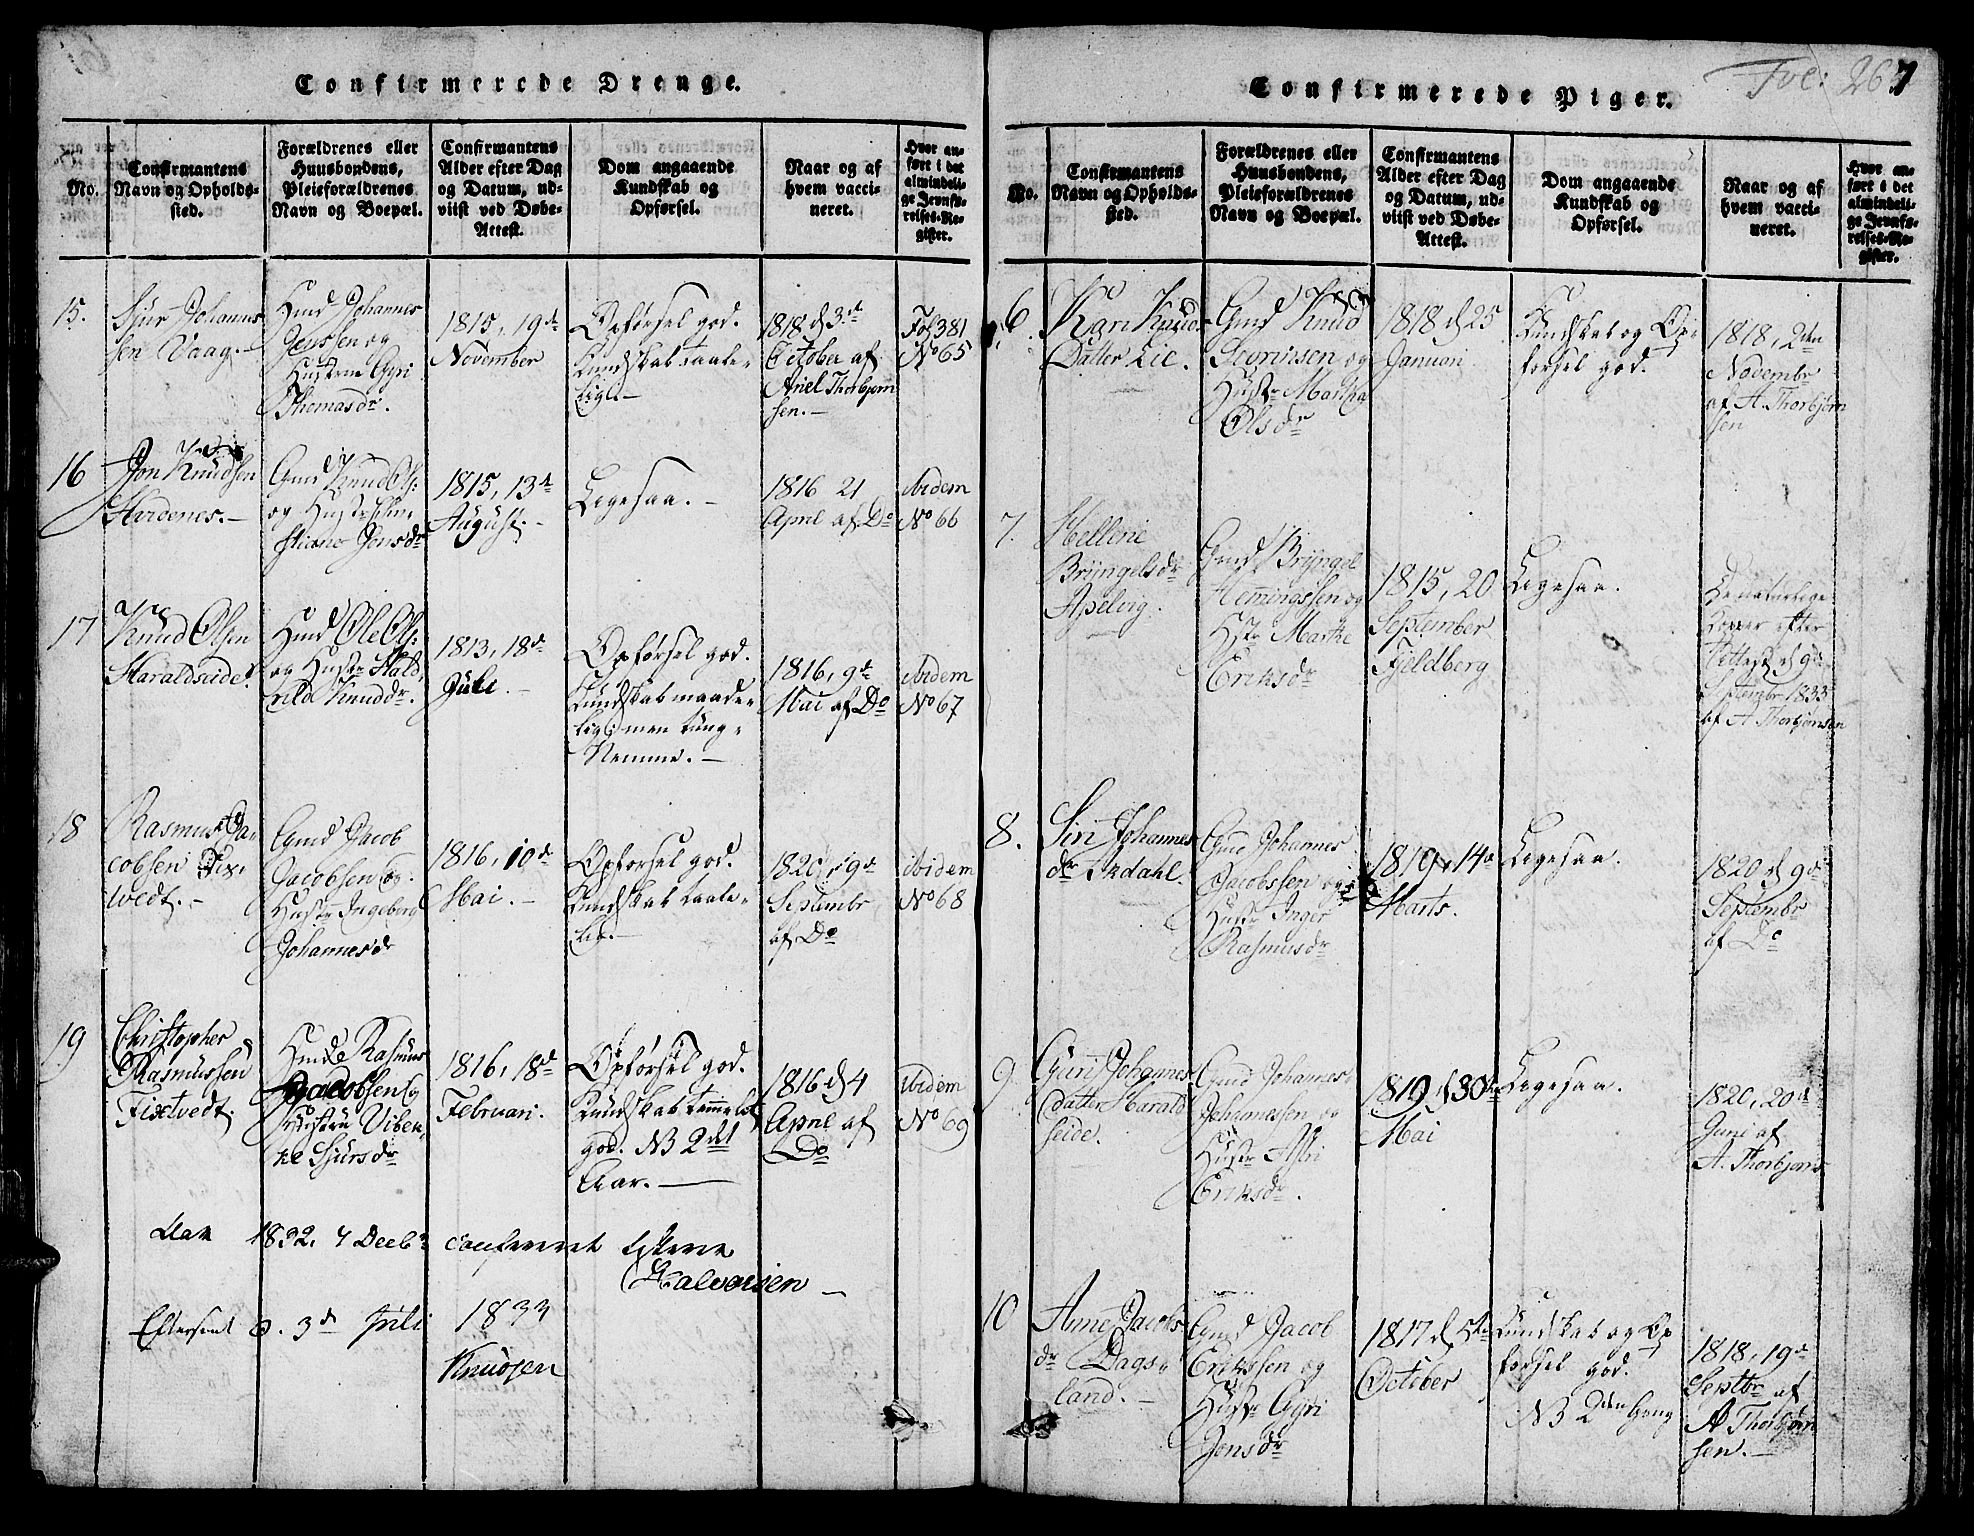 Confirmerede Drenge.
No.
Confirmantens
Navn og Opholds-
sted.
Forældrenes eller
Huusbondens,
Pleieforældrenes
Navn og Boepæl.
Confirmantens
Alder efter Dag
og Datum, ud-
viist ved Døbe-
Attest.
Dom angaaende
Kundskab og
Opførsel.
Naar og af
hvem vacci-
neret.
Hvor an-
ført i det
almindeli-
ge Jevnfø-
relses-Re-
gister.
15.
Sjur Johannes
sen Vaag.
Hmd Johannes
Jenssen og
Hustrue Gyri
Thomasdr.
1815, 19de
November
Opførsel god.
Kundskab taale-
lig.
1818 d 3de
October af
Ariel Thorbjørn
sen.
Fol 381
No 65
16
Jon Knudsen
Hardenes.
Gmd Knud Ols:
og Hustr
stiane Jonsdr
1815, 13de
August.
Ligesaa.
1816 21
April af Do
ibidem
No 66
17
Knud Olsen
Haraldseide.
Hmd Ole Ols:
og Hustr
Knuddr.
1813, 18de
Juli.
Opførsel god.
Kundskab maade-
lig; men tung-
Nemme.
1816, 9de
Mai af Do
ibidem
No 67
18
Rasmus Ja-
cobsen Tix-
tvedt.
Gmd Jacob
Jacobsen og
Hustr Ingeborg
Johannesdr
1816, 10de
Mai.
Opførsel god.
Kundskab taale-
lig.
1820, 19de
Septembr
af Do
ibidem
No 68
19
Christopher
Rasmussen
Tixtvedt.
Hmd Rasmus
Jacobsen og
Hustru Viben-
ke Sjursdr
1816, 18de
Februari.
Opførsel god.
Kundskab temmelig
god. NB 2det
Aar.
1816 d 4
April af
Do
ibidem
No 69
Aar 1832, 4 Decbr confereret
Halvorsen
Efterseet d. 3de Juli 1833
Knudsen
Confirmerede Piger.
Fol: 267
No.
Confirmantens
Navn og Opholds-
sted.
Forældrenes eller
Huusbondens,
Pleieforældrenes
Navn og Boepæl.
Confirmantens
Alder efter Dag
og Datum, ud-
viist ved Døbe-
Attest.
Dom angaaende
Kundskab og
Opførsel.
Naar og af
hvem vacci-
neret.
Hvor an-
ført i det
almindeli-
ge Jevnfø-
relses-Re-
gister.
6.
Kari Knud-
Datter Lie.
Gmd Knud
Sevrinssen og
Hustr Martha
Olsdr
1818 d 25
Januari
Kundskab og Op-
førsel god.
1818, 2den
Novembr
af A. Thorbjørn
sen
7.
Hellene
Bryngelsdr
Apelvig.
Gmd Bryngel
Hemmingssen og
Hstr Marthe
Eriksdr
1815, 20
September
Fjeldberg
Ligesaa.
De naturlige
Kopper efter
Attest d 9de
Septembr 1833
af A Thorbjørnsen
8.
Siri Johannes
dr Akdahl.
Gmd Johannes
Jacobssen og
Hustr Inger
Rasmusdr
1819, 14de
Marts.
Ligesaa.
1820 d 9de
Septembr
af Do
9
Guri Johannes
datter Harald
seide.
Gmd Johannes
Johannessen og
Hustr Astri
Eriksdr.
1819 d 30te
Mai
Ligesaa.
1820, 20de
Juni af
A. Thorbjørns
10
Anne Jacobs
dr Dags-
land.
Gmd Jacob
Erikssen og
Hustr Gyri
Jonsdr
1817 d 5te
October
Kundskab og Op
førsel god.
NB 2den Gang
1818, 19de
Septbr af
A Thorbjørn
sen.